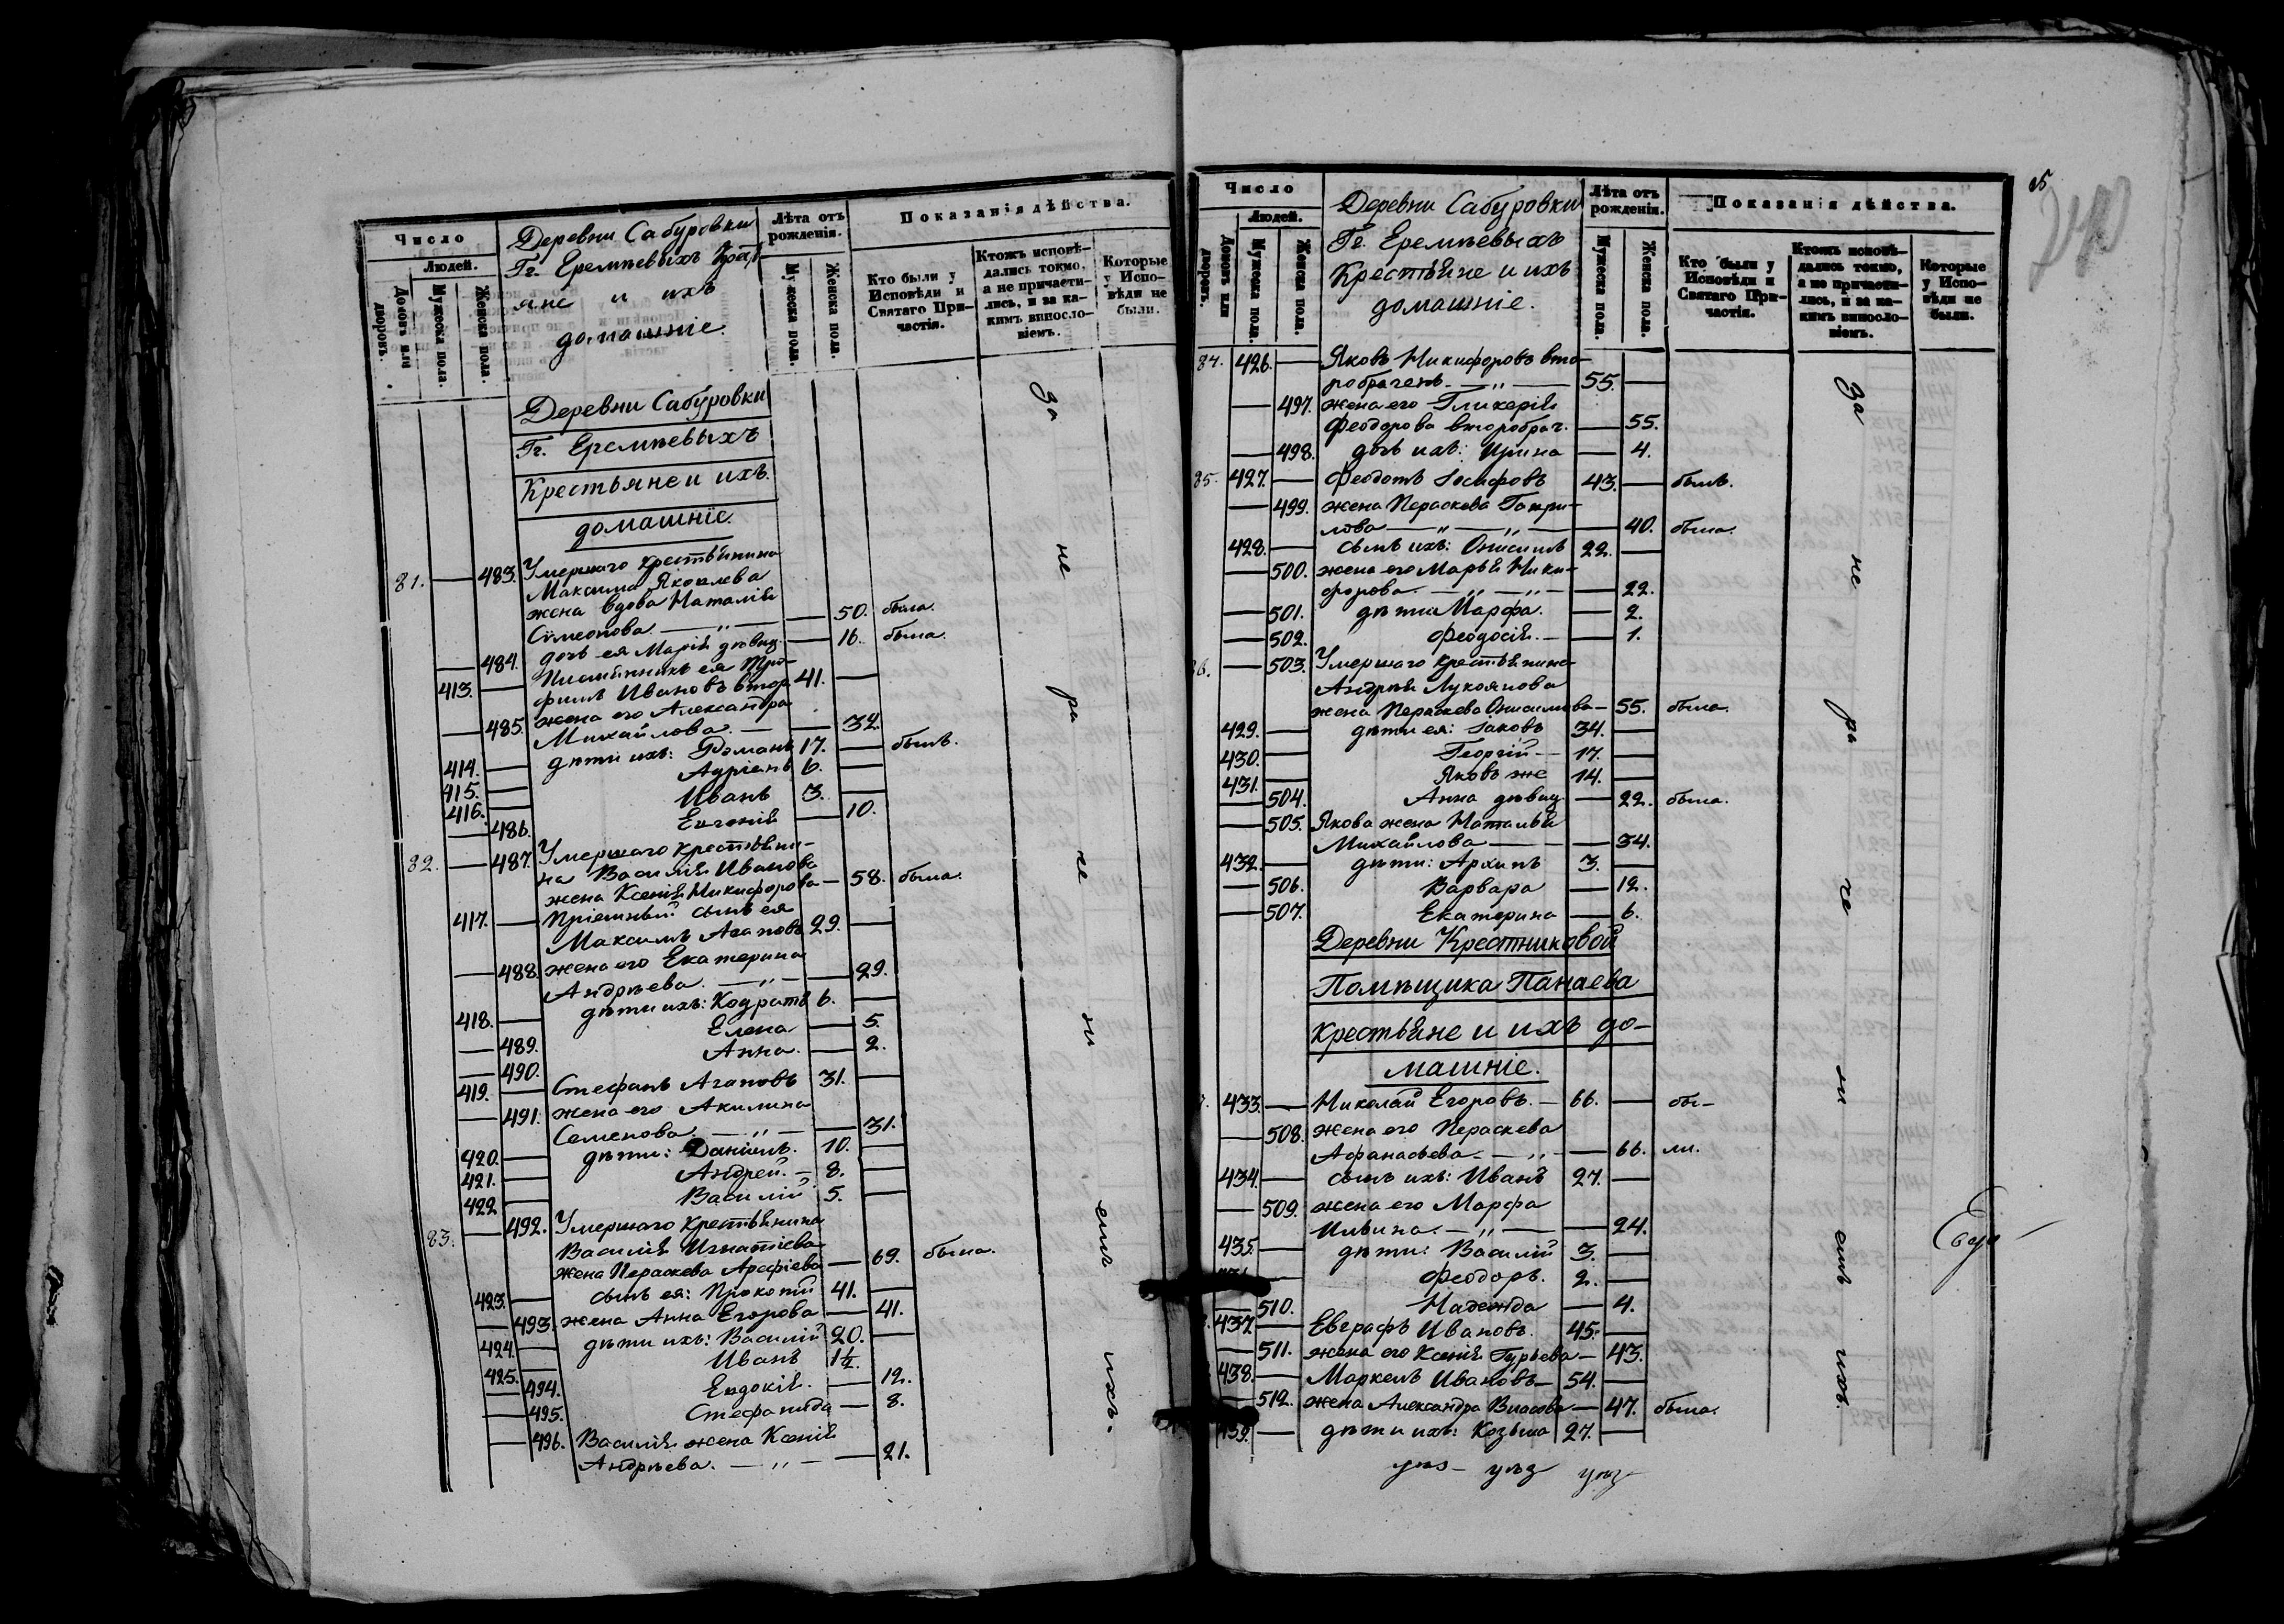 Число
Людей.
Домовъ или дворовъ.
Мужеска пола.
Женска пола.
Деревни Сабуровки
Гг. Еремѣевыхъ Крест-
яне и ихъ
домашніе.
Лѣта отъ рожденія.
Мужеска пола.
Женска пола.
Показанія дѣйства.
Кто были у Исповѣди и Святаго Причастія.
Ктожъ исповѣ-
дались токмо,
а не причасти-
лись, и за ка-
кимъ винносло-
віемъ.
Которые
у Испо-
вѣди не
были.
Деревни Сабуровки
Гг. Еремѣевыхъ
Крестьяне и ихъ
домашніе.
81. — 483. Умершаго крестьянина
Максима Яковлева
жена вдова Наталія
Симеонова — „ — — 50. была.
— 484. дочь ея Марія дѣвиц. — 16. была.
413. — Племянникъ ея Тро-
фимъ Ивановъ втор. 41. —
— 485. жена его Александра
Михайлова. — — 32.
414. — дѣти ихъ: Романъ 17. — былъ.
415. — Адріанъ 6. —
416. — Иванъ 3. —
— 486. Евгенія — 10.
82. — 487. Умершаго крестьяни-
на Василія Иванова
жена Ксенія Никифорова — 58. была.
417. — Пріемный сынъ ея
Максимъ Агаповъ 29. —
— 488. жена его Екатерина
Андрѣева. — „ — — 29.
418. — дѣти ихъ: Кодратъ 6. —
— 489. Елена — 5.
— 490. Анна. — 2.
419. — Стефанъ Агаповъ 31. —
— 491. жена его Акилина
Семенова. — „ — — 31.
420. — дѣти: Даніилъ. 10. —
421. — Андрей. — 8. —
422. — Василій 5. —
83. — 492. Умершаго крестьянина
Василія Игнатіева
жена Параскева Арефіева — 69. была.
423. — сынъ ея: Прокопій 41. —
— 493. жена Анна Егорова — 41.
424. — дѣти ихъ: Василій 20. —
425. — Иванъ 1½. —
— 494. Евдокія. — 12.
— 495. Стефанида — 8.
— 496. Василія жена Ксенія
Андрѣева. — „ — — 21.
за
не
ра
че
ні
емъ
ихъ.
Число
Людей.
Домовъ или дворовъ.
Мужеска пола.
Женска пола.
Деревни Сабуровки
Гг. Еремѣевыхъ
Крестьяне и ихъ
домашніе.
Лѣта отъ рожденія.
Мужеска пола.
Женска пола.
Показанія дѣйства.
Кто были у Исповѣди и Святаго Причастія.
Ктожъ исповѣ-
дались токмо,
а не причасти-
лись, и за ка-
кимъ винносло-
віемъ.
Которые
у Испо-
вѣди не
были.
84. 426. — Яковъ Никифоровъ вто-
робраченъ. — „ — 55. —
— 497. жена его Гликерія
Феодорова второбрач. — 55.
— 498. дочь ихъ: Ирина — 4.
85. 427. — Феодотъ Іосифовъ 43. — былъ.
— 499. жена Параскева Гаври-
лова — „ — „ — — 40. была.
428. — сынъ ихъ: Онисимъ 22. —
— 500. жена его Марья Ники-
форова. — „ — „ — — 22.
— 501. дѣти Марфа. — 2.
— 502. Феодосія. — — 1.
86. — 503. Умершаго крестьянина
Андрея Лукоянова
жена Параскева Онисимова — 55. была.
429. — дѣти ея: Іаковъ 34. —
430. — Георгій — 17. —
431. — Яковъ же 14. —
— 504. Анна дѣвиц. — 22. была.
— 505. Якова жена Наталья
Михайлова — — — 34.
432. — дѣти: Архипъ 3. —
— 506. Варвара — 12.
— 507. Екатерина — 6.
Деревни Крестниковой
Помѣщика Панаева
крестьяне и ихъ до-
машніе.
433. — Николай Егоровъ. — 66. — бы-
— 508. жена его Параскева
Афанасьева. — „ — — 66. ли.
434. — сынъ ихъ: Иванъ 27. —
— 509. жена его Марфа
Ильина. — „ — — 24.
435. — дѣти: Василій 3. —
Феодоръ. 2. —
— 510. Надежда — 4.
437. — Евграфъ Ивановъ. 45. —
— 511. жена его Ксенія Гурьева — 43.
438. — Маркелъ Ивановъ — 54. —
— 512. жена Александра Власова — 47. была.
439. — дѣти ихъ: Козьма 27. —
за
не
ра
че
ні
емъ
ихъ.